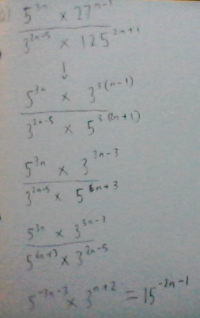 5^{3n} × 27^{n-1}
3^{2n-5} × 125^{2n+1}
↓
5^{3n} × 3^{3(n-1)}
3^{2n-5} × 5^{3(2n+1)}
5^{3n} × 3^{3n-3}
3^{2n-5} × 5^{6n+3}
5^{3n} × 3^{3n-3}
5^{6n+3} × 3^{2n-5}
5^{-3n-3} × 3^{n+2} = 15^{-2n-1}